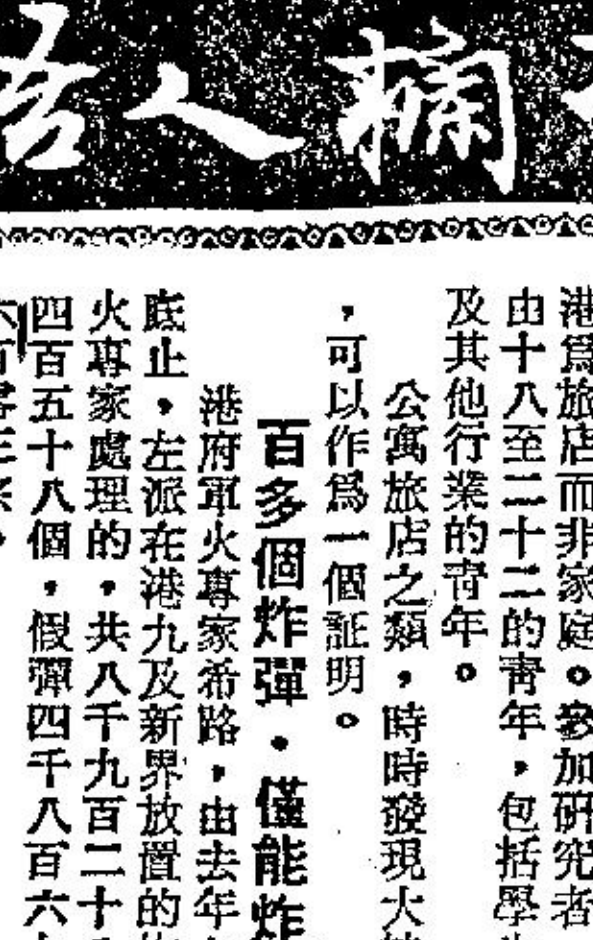 人楠
港爲旅店而非家庭。參加研究者
由十八至二十二的靑年，包括學
及其他行業的靑年。
公寓旅店之類，時時發現大
，可以作爲一個証明。
百多個炸彈・僅能炸
港府軍火專家希路，由去年
底止，左派在港九及新界放置的
火專家處理的，共八千九百二十
四百五十八個，假彈四千八百六
六百